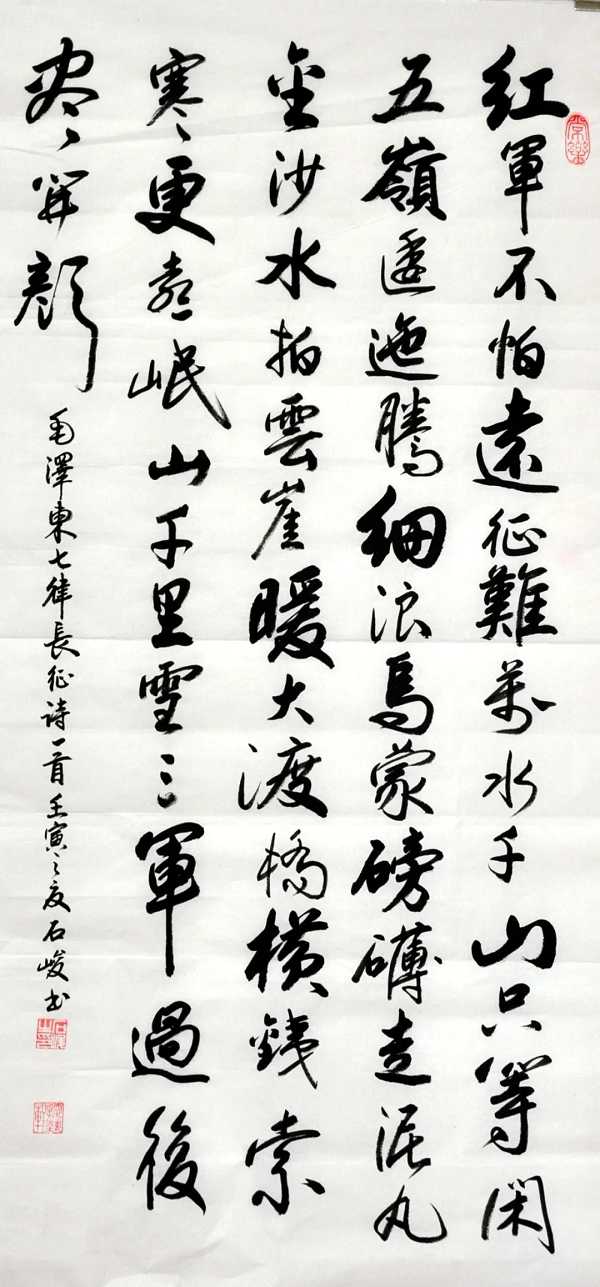 紅軍不怕遠征難萬水千山只等閑
五嶺逶迤騰細浪烏蒙磅礴走泥丸
金沙水拍雲崖暖大渡橋橫鐵索
寒更喜岷山千里雪三軍過後
盡開顏
毛澤東七律長征诗一首壬寅之夏石峻书